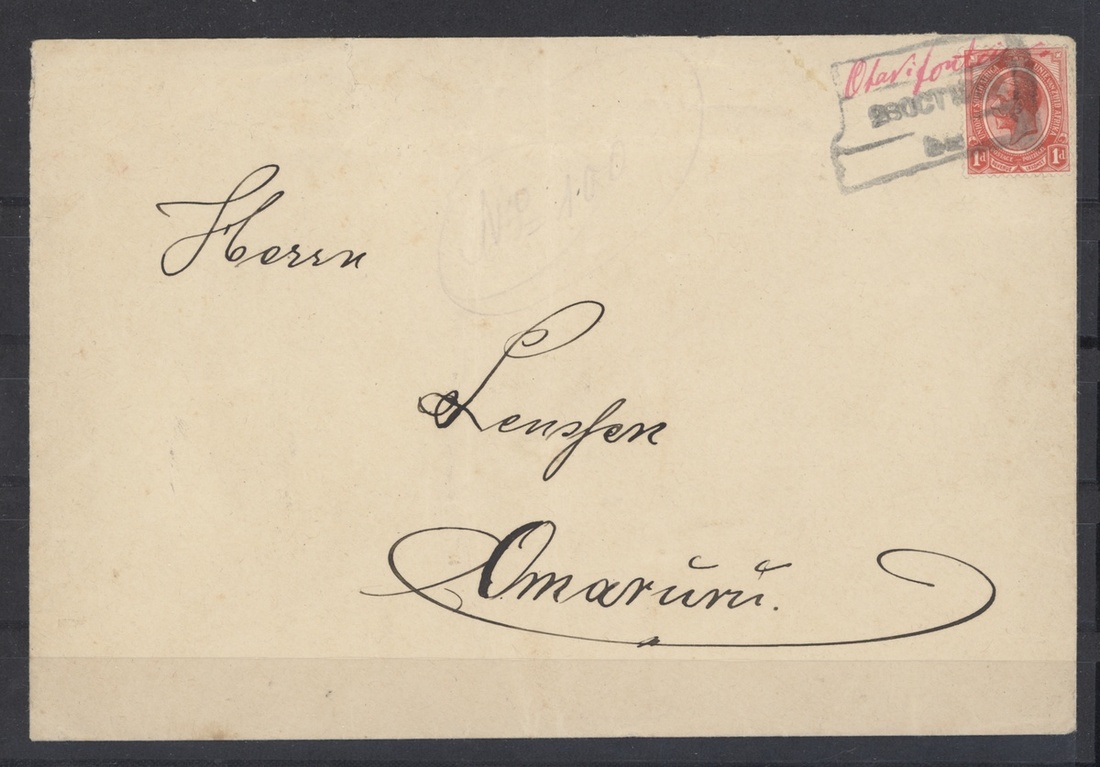 Otavifontein
28 OCT
1d 1d
No 100
Herrn
Lenssen
Omaruru.